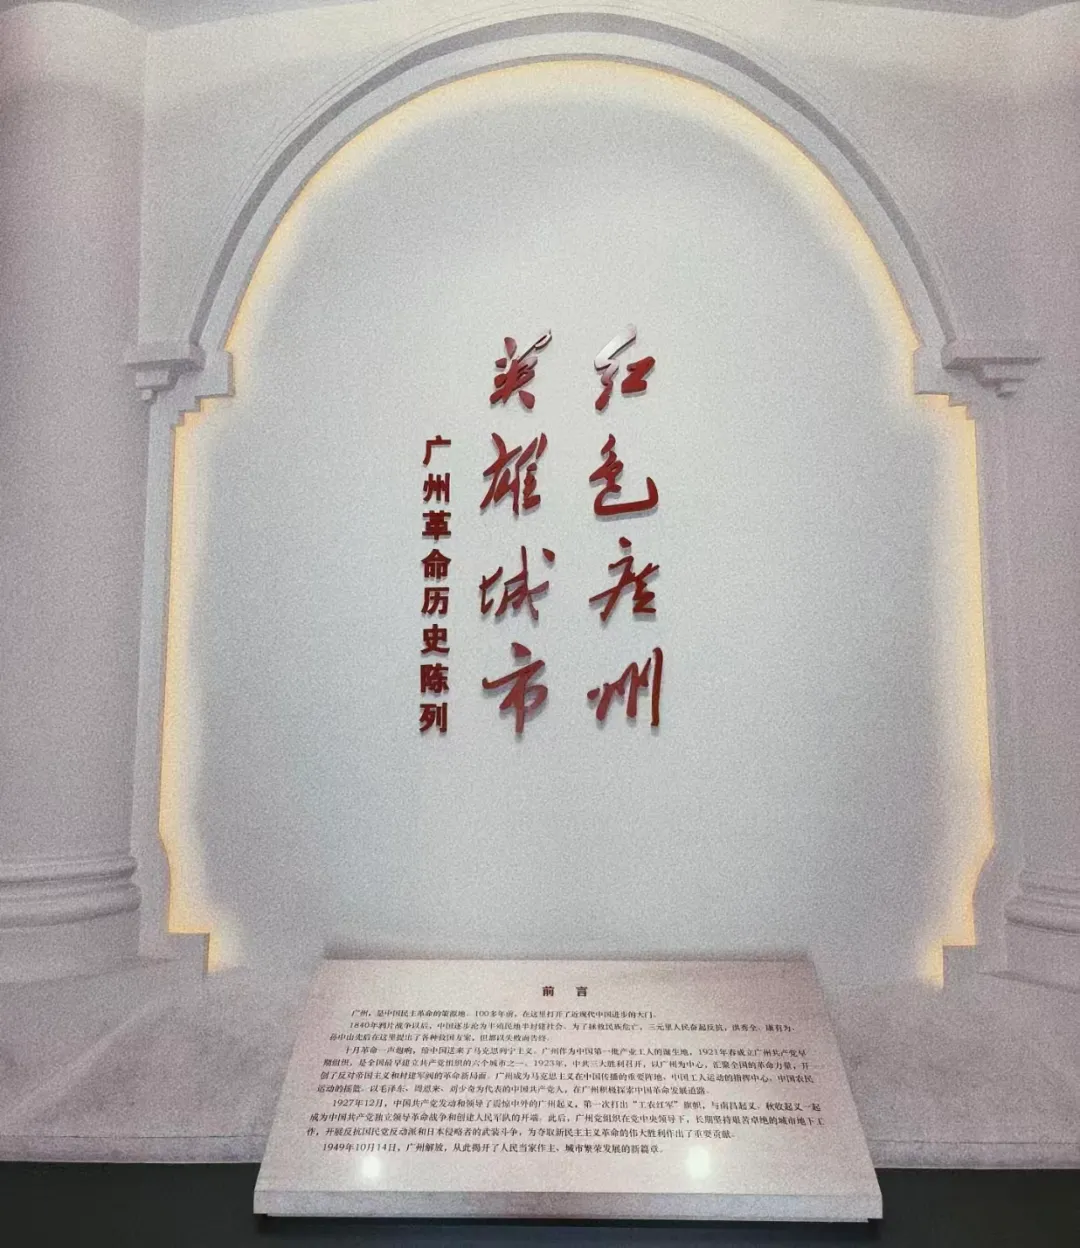 红色广州
英雄城市
广州革命历史陈列
前言
广州，是中国民主革命的策源地。100多年前，在这里打开了近现代中国进步的大门。
1840年鸦片战争以后，中国逐步沦为半殖民地半封建社会。为了拯救民族危亡，三元里人民奋起反抗，洪秀全、康有为、
孙中山先后在这里提出了各种救国方案，但都以失败而告终。
十月革命一声炮响，给中国送来了马克思列宁主义。广州作为中国第一批产业工人的诞生地，1921年春成立广州共产党早
期组织，是全国最早建立共产党组织的六个城市之一。1923年，中共三大胜利召开，以广州为中心，汇聚全国的革命力量，开
创了反对帝国主义和封建军阀的革命新局面。广州成为马克思主义在中国传播的重要阵地、中国工人运动的指挥中心、中国农民
运动的摇篮。以毛泽东、周恩来、刘少奇为代表的中国共产党人，在广州积极探索中国革命发展道路。
1927年12月，中国共产党发动和领导了震惊中外的广州起义，第一次打出“工农红军”旗帜，与南昌起义、秋收起义一起
成为中国共产党独立领导革命战争和创建人民军队的开端。此后，广州党组织在党中央领导下，长期坚持艰苦卓绝的城市地下工
作，开展反抗国民党反动派和日本侵略者的武装斗争，为夺取新民主主义革命的伟大胜利作出了重要贡献。
1949年10月14日，广州解放，从此揭开了人民当家作主、城市繁荣发展的新篇章。